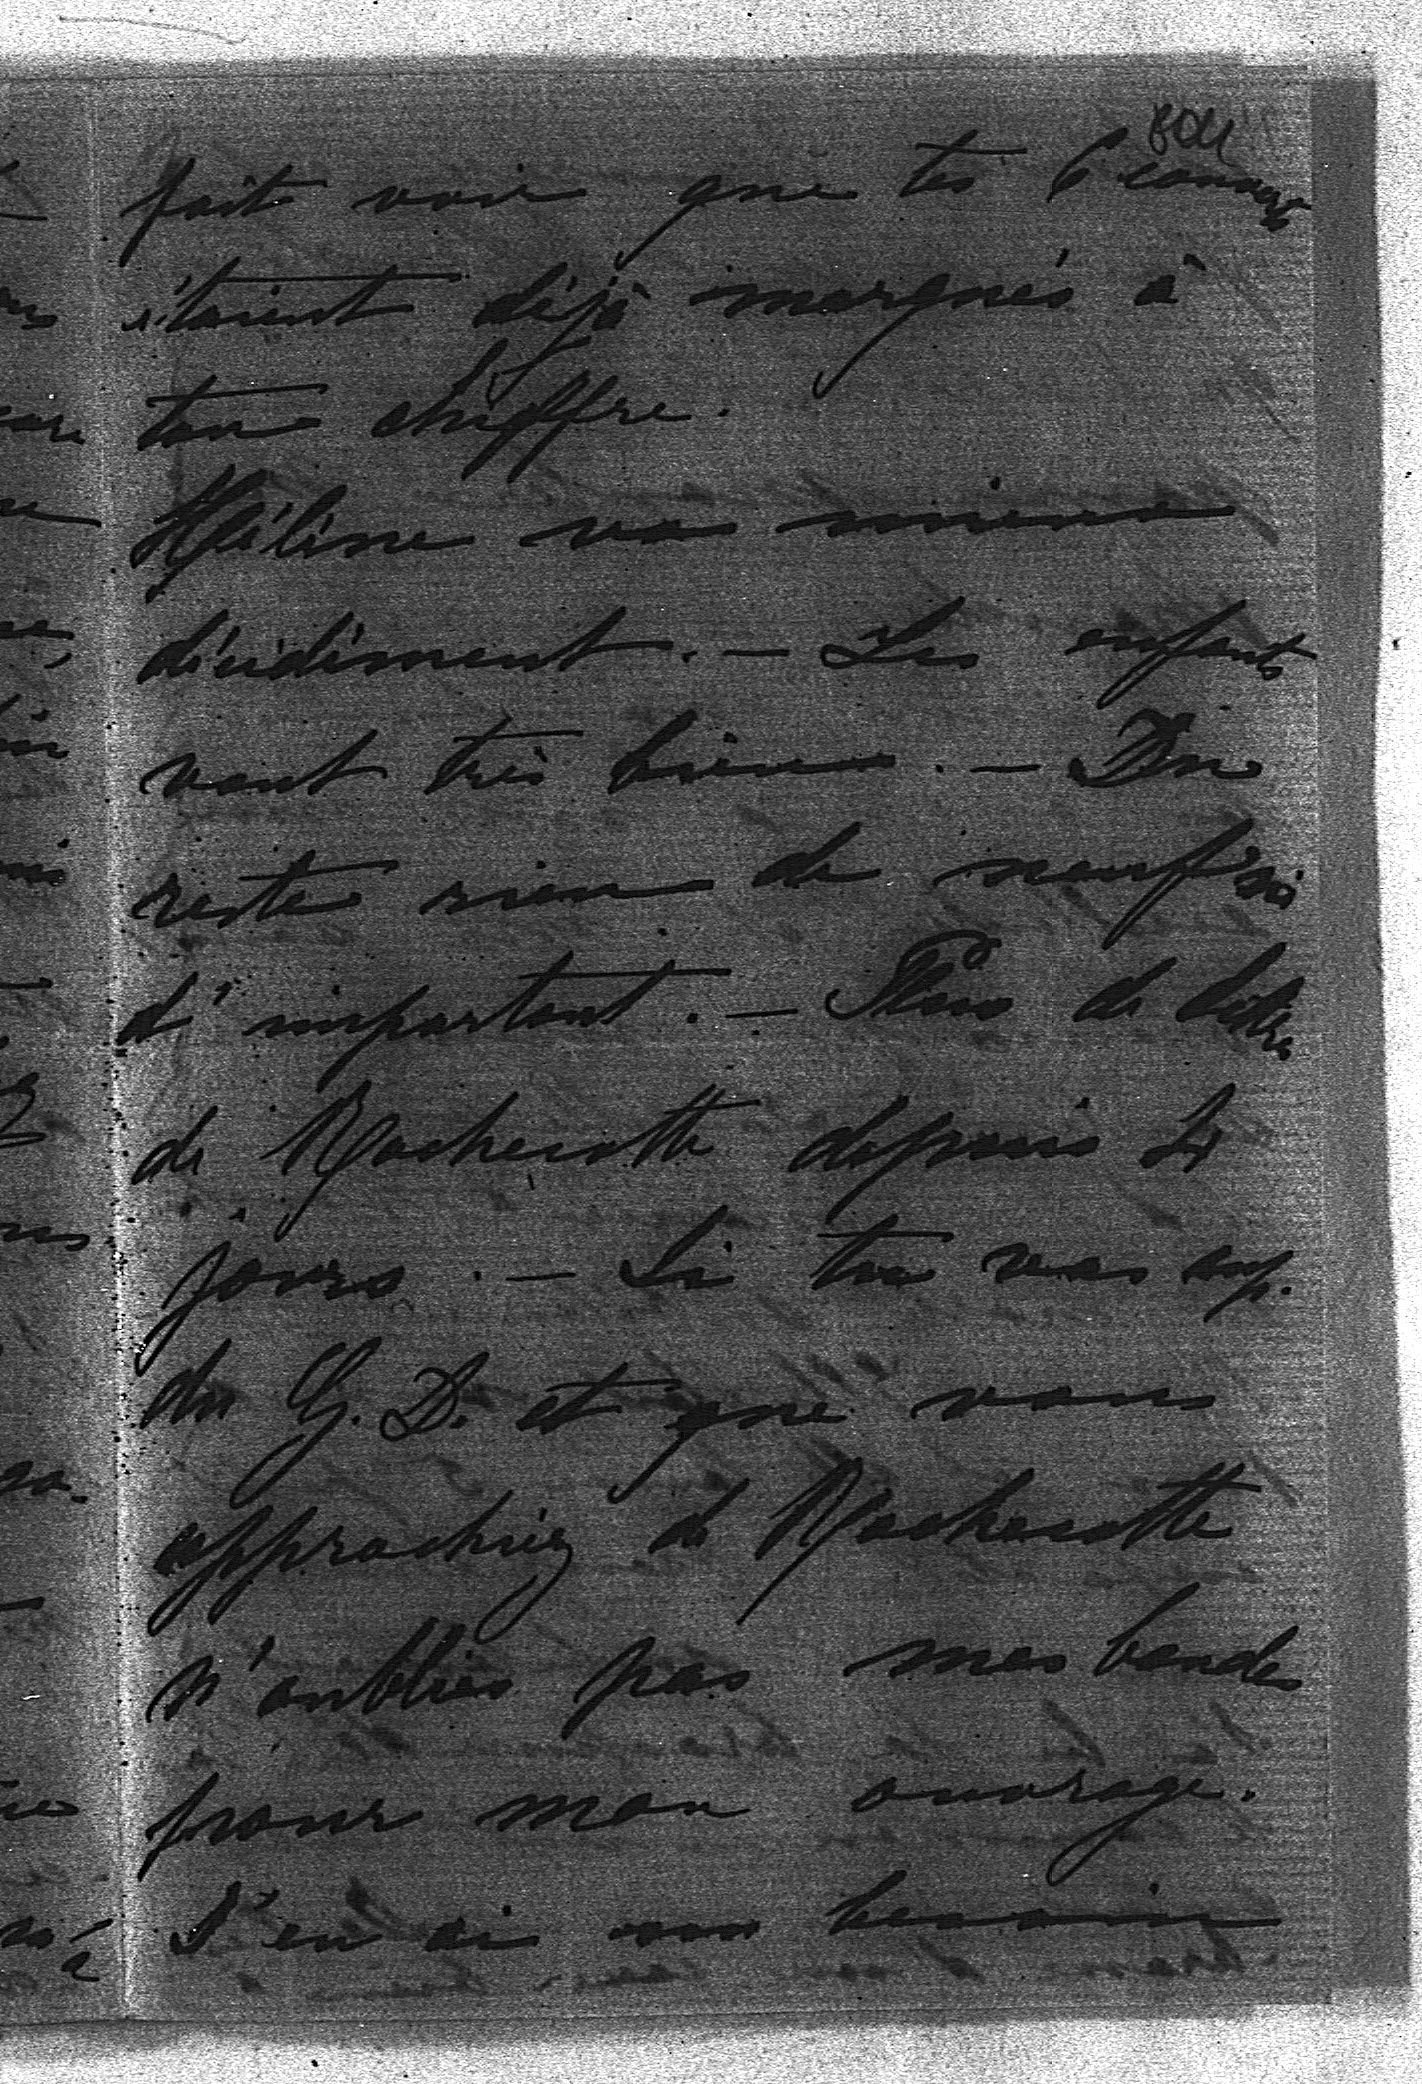 fait voir que tes 6
étaient déjà marqués à
ton chiffre.
Hélène va mieux
décidément. — Les enfants
vont très bien. — Du
reste rien de neuf ni
d'important. — Plus de lettre
de Rochecotte depuis
jours. — Si tu vas
du G. D. et que vous
approchiez de Rochecotte
n'oublies pas mes bandes
pour mon ouvrage.
J'en ai un besoin